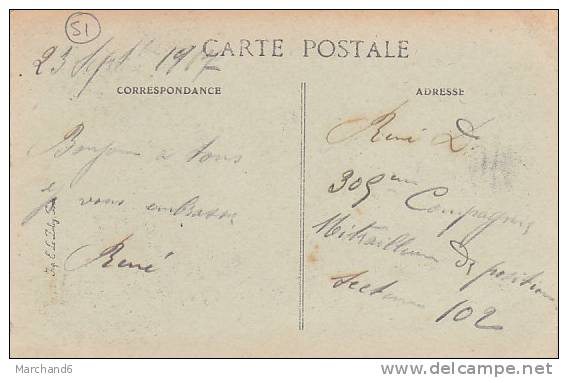 51
23 Sept 1917
CARTE POSTALE
CORRESPONDANCE
ADRESSE
Bonjour a tous
je vous embrasse
René
René D.
309eme Compagnie
Mitrailleuse de position
Secteur 102
Marchand6
delcampe.net